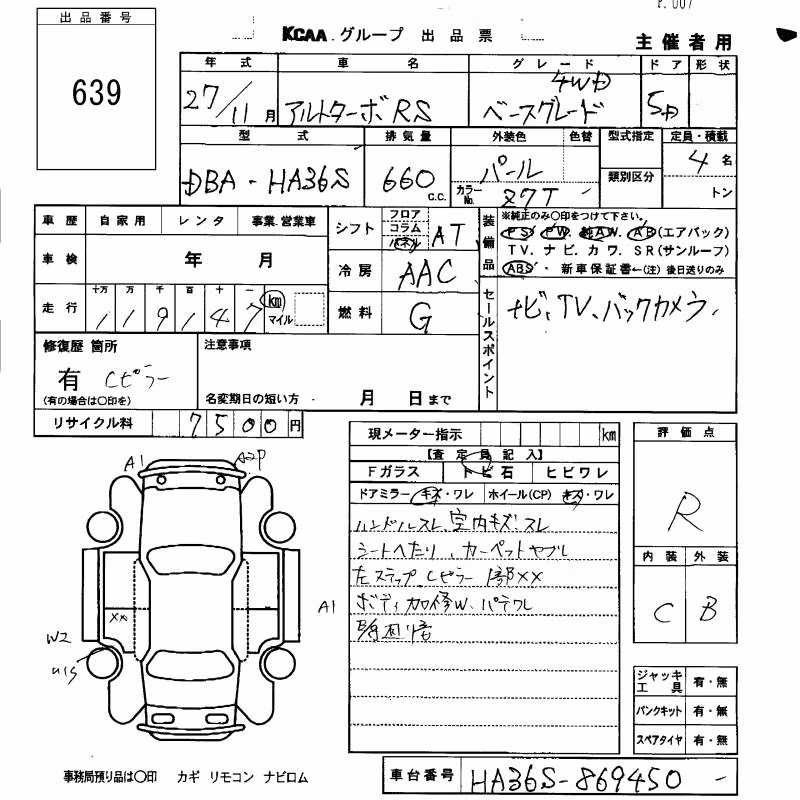 P.007
出品番号
639
KCAA.グループ 出品票
主催者用
年式 車名 グレード ドア 形状
27/11月 アルトターボRS 4WD ベースグレード 5D
型式 排気量 外装色 色替 型式指定 定員・積載
DBA-HA36S 660 C.C. パール 類別区分 4名
カラーNo. Z7T トン
車歴 自家用 レンタ 事業.営業車
車検 年 月
走行 十万 万 千 百 十 一 km マイル
119147
シフト フロア コラム パネル AT
冷房 AAC
燃料 G
装備品 ※純正のみ〇印をつけて下さい。
PS. PW. 純AW. AB(エアバック)
TV. ナビ. カワ. SR(サンルーフ)
ABS・ 新車保証書←(注) 後日送りのみ
セールスポイント
ナビ、TV、バックカメラ
修復歴 箇所
有 Cピラー
(有の場合は〇印を)
注意事項
名変期日の短い方 月 日まで
リサイクル料 7500円
現メーター指示 km
【査定員記入】
Fガラス トビ石 ヒビワレ
ドアミラー キズ・ワレ ホイール(CP) キズ・ワレ
ハンドルスレ、室内キズ.スレ
シートへたり、カーペットヤブレ
左ステップ、Cピラー 部XX
ボディ加修W、パテワレ
評価点
R
内装 外装
C B
A1 A2P
A1
XX
W2
U1S
ジャッキ工具 有・無
パンクキット 有・無
スペアタイヤ 有・無
事務局預り品は〇印 カギ リモコン ナビロム
車台番号 HA36S-869450 -